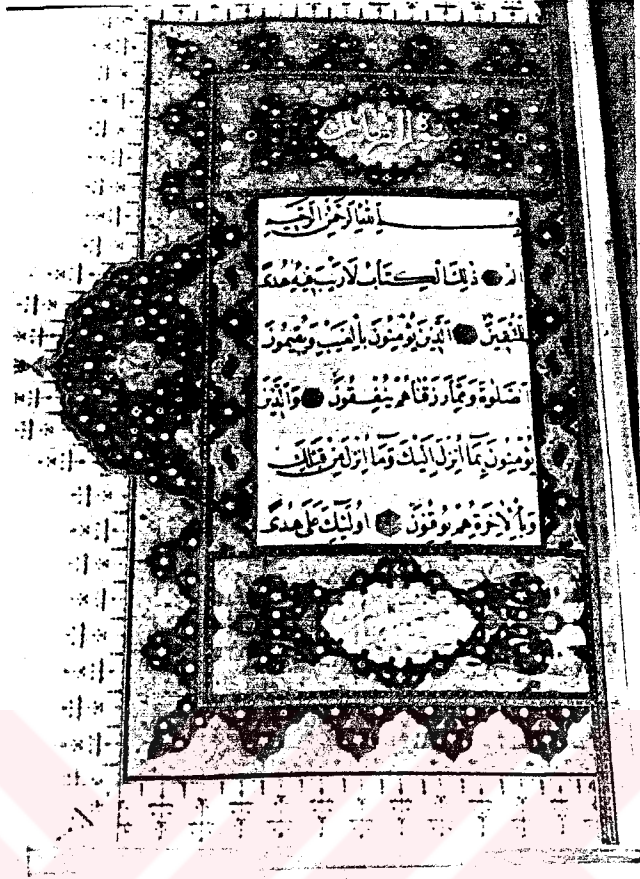 بِسْمِ اللّٰهِ الرَّحْمٰنِ الرَّحِيمِ
الٓمٓ ذٰلِكَ الْكِتَابُ لَا رَيْبَ فِيهِ هُدًى
لِلْمُتَّقِينَ الَّذِينَ يُؤْمِنُونَ بِالْغَيْبِ وَيُقِيمُونَ
الصَّلٰوةَ وَمِمَّا رَزَقْنَاهُمْ يُنْفِقُونَ وَالَّذِينَ
يُؤْمِنُونَ بِمَٓا اُنْزِلَ اِلَيْكَ وَمَٓا اُنْزِلَ مِنْ قَبْلِكَ
وَبِالْاٰخِرَةِ هُمْ يُوقِنُونَ اُولٰٓئِكَ عَلٰى هُدًى